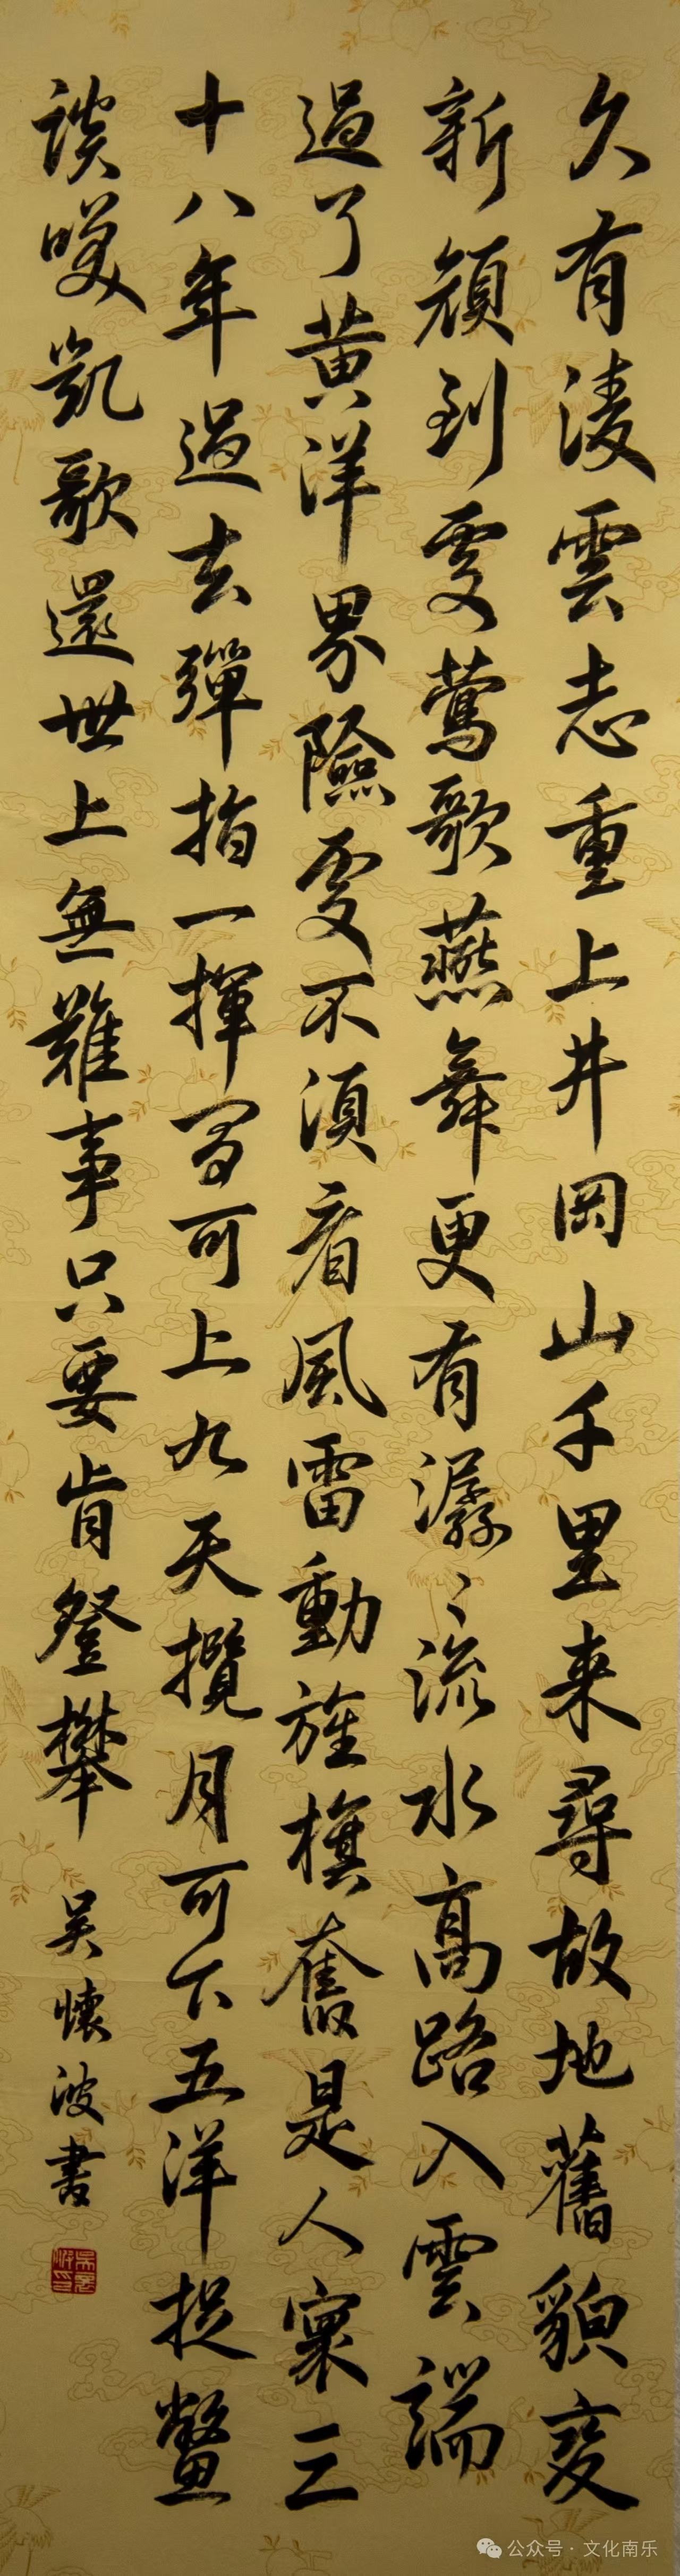 久有凌雲志重上井岡山千里来尋故地舊貌变
新顔到處莺歌燕舞更有潺〻流水高路入雲端
過了黄洋界險處不須看風雷動旌旗奮是人寰三
十八年過去彈指一揮间可上九天攬月可下五洋捉鳖
談笑凯歌還世上無難事只要肯登攀
吴懷波書
公众号·文化南乐